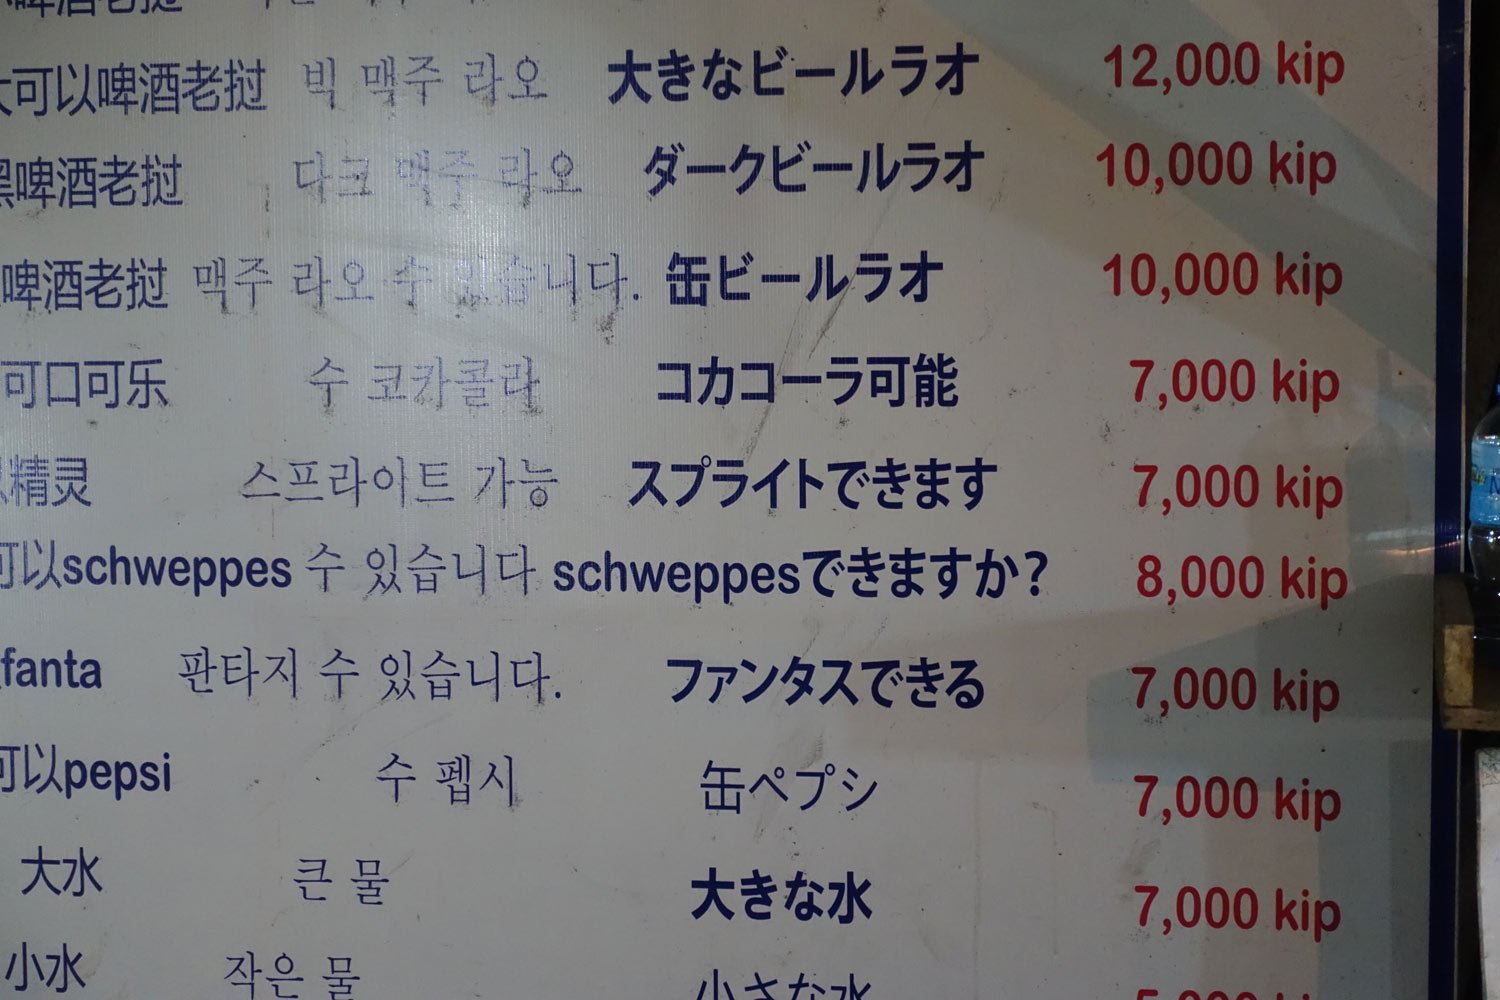 啤酒老挝
大可以啤酒老挝 빅 맥주 라오 大きなビールラオ 12,000 kip
黑啤酒老挝 다크 맥주 라오 ダークビールラオ 10,000 kip
啤酒老挝 맥주 라오 수 있습니다. 缶ビールラオ 10,000 kip
可口可乐 수 코카콜라 コカコーラ可能 7,000 kip
精灵 스프라이트 가능 スプライトできます 7,000 kip
可以schweppes 수 있습니다 schweppesできますか? 8,000 kip
fanta 판타지 수 있습니다. ファンタスできる 7,000 kip
可以pepsi 수 펩시 缶ペプシ 7,000 kip
大水 큰 물 大きな水 7,000 kip
小水 작은 물 小さな水